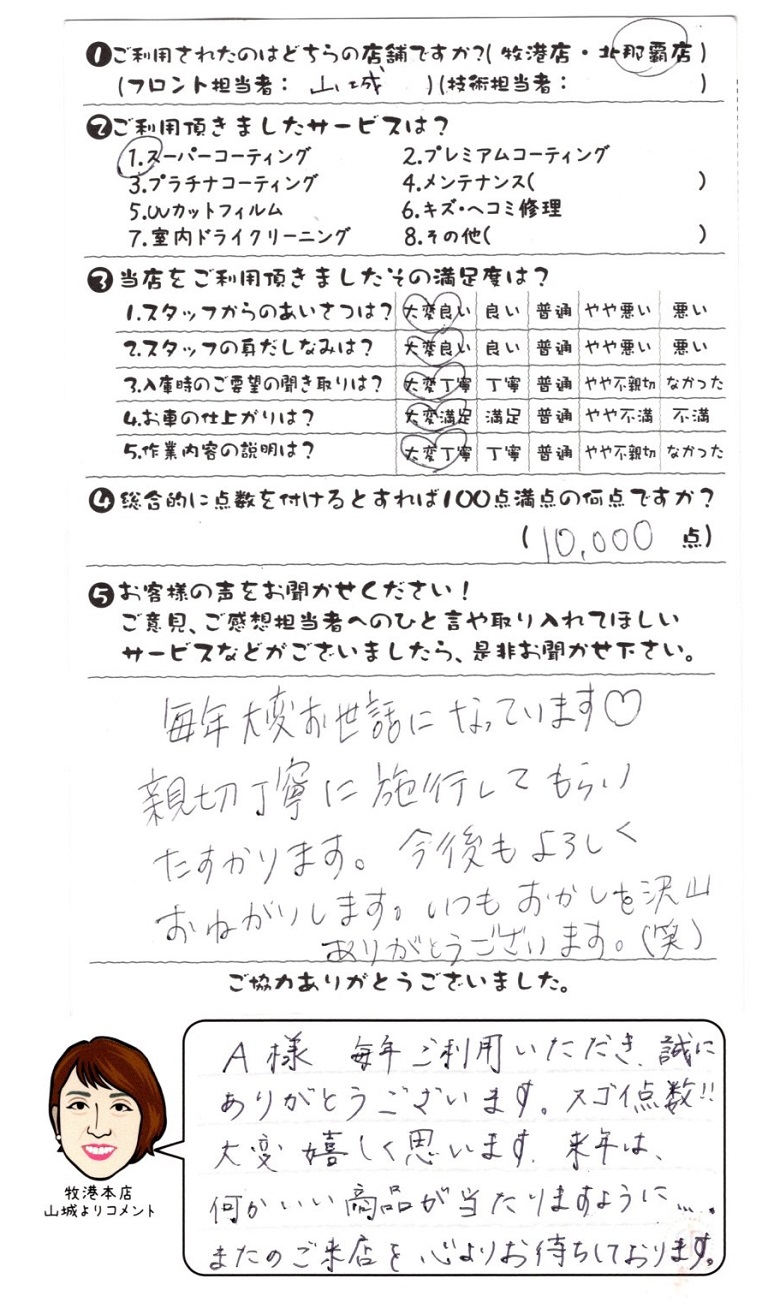 ❶ご利用されたのはどちらの店舗ですか?(牧港店・北那覇店)
(フロント担当者: 山城 )(技術担当者: )
❷ご利用頂きましたサービスは?
1.スーパーコーティング 2.プレミアムコーティング
3.プラチナコーティング 4.メンテナンス( )
5.UVカットフィルム 6.キズ・ヘコミ修理
7.室内ドライクリーニング 8.その他( )
❸当店をご利用頂きましたその満足度は?
1.スタッフからのあいさつは? 大変良い 良い 普通 やや悪い 悪い
2.スタッフの身だしなみは? 大変良い 良い 普通 やや悪い 悪い
3.入庫時のご要望の聞き取りは? 大変丁寧 丁寧 普通 やや不親切 なかった
4.お車の仕上がりは? 大変満足 満足 普通 やや不満 不満
5.作業内容の説明は? 大変丁寧 丁寧 普通 やや不親切 なかった
❹総合的に点数を付けるとすれば100点満点の何点ですか?
(10,000 点)
❺お客様の声をお聞かせください!
ご意見、ご感想担当者へのひと言や取り入れてほしい
サービスなどがございましたら、是非お聞かせ下さい。
毎年大変お世話になっています♡
親切丁寧に施行してもらい
たすかります。今後もよろしく
おねがいします。いつもおかしを沢山
ありがとうございます。(笑)
ご協力ありがとうございました。
A様 毎年ご利用いただき、誠に
ありがとうございます。スゴイ点数!!
大変嬉しく思います。来年は、
何かいい商品が当たりますように…。
またのご来店を心よりお待ちしております。
牧港本店
山城よりコメント